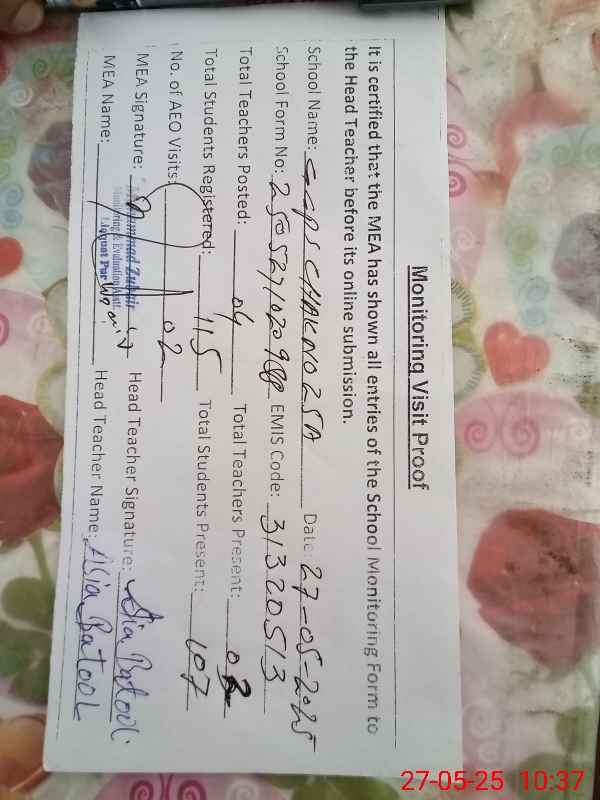 Monitoring Visit Proof
It is certified that the MEA has shown all entries of the School Monitoring Form to
the Head Teacher before its online submission.
School Name: GGPS CHAK NO 25A Date: 27-05-2025
School Form No: EMIS Code: 31320513
Total Teachers Posted: 04 Total Teachers Present:
Total Students Registered: 115 Total Students Present: 107
No. of AEO Visits: 02
MEA Signature: Head Teacher Signature: Asia Batool
Muhammad Zubair
Monitoring & Evaluation Asstt.
Liaquat Pur
MEA Name: Head Teacher Name: Asia Batool
27-05-25 10:37